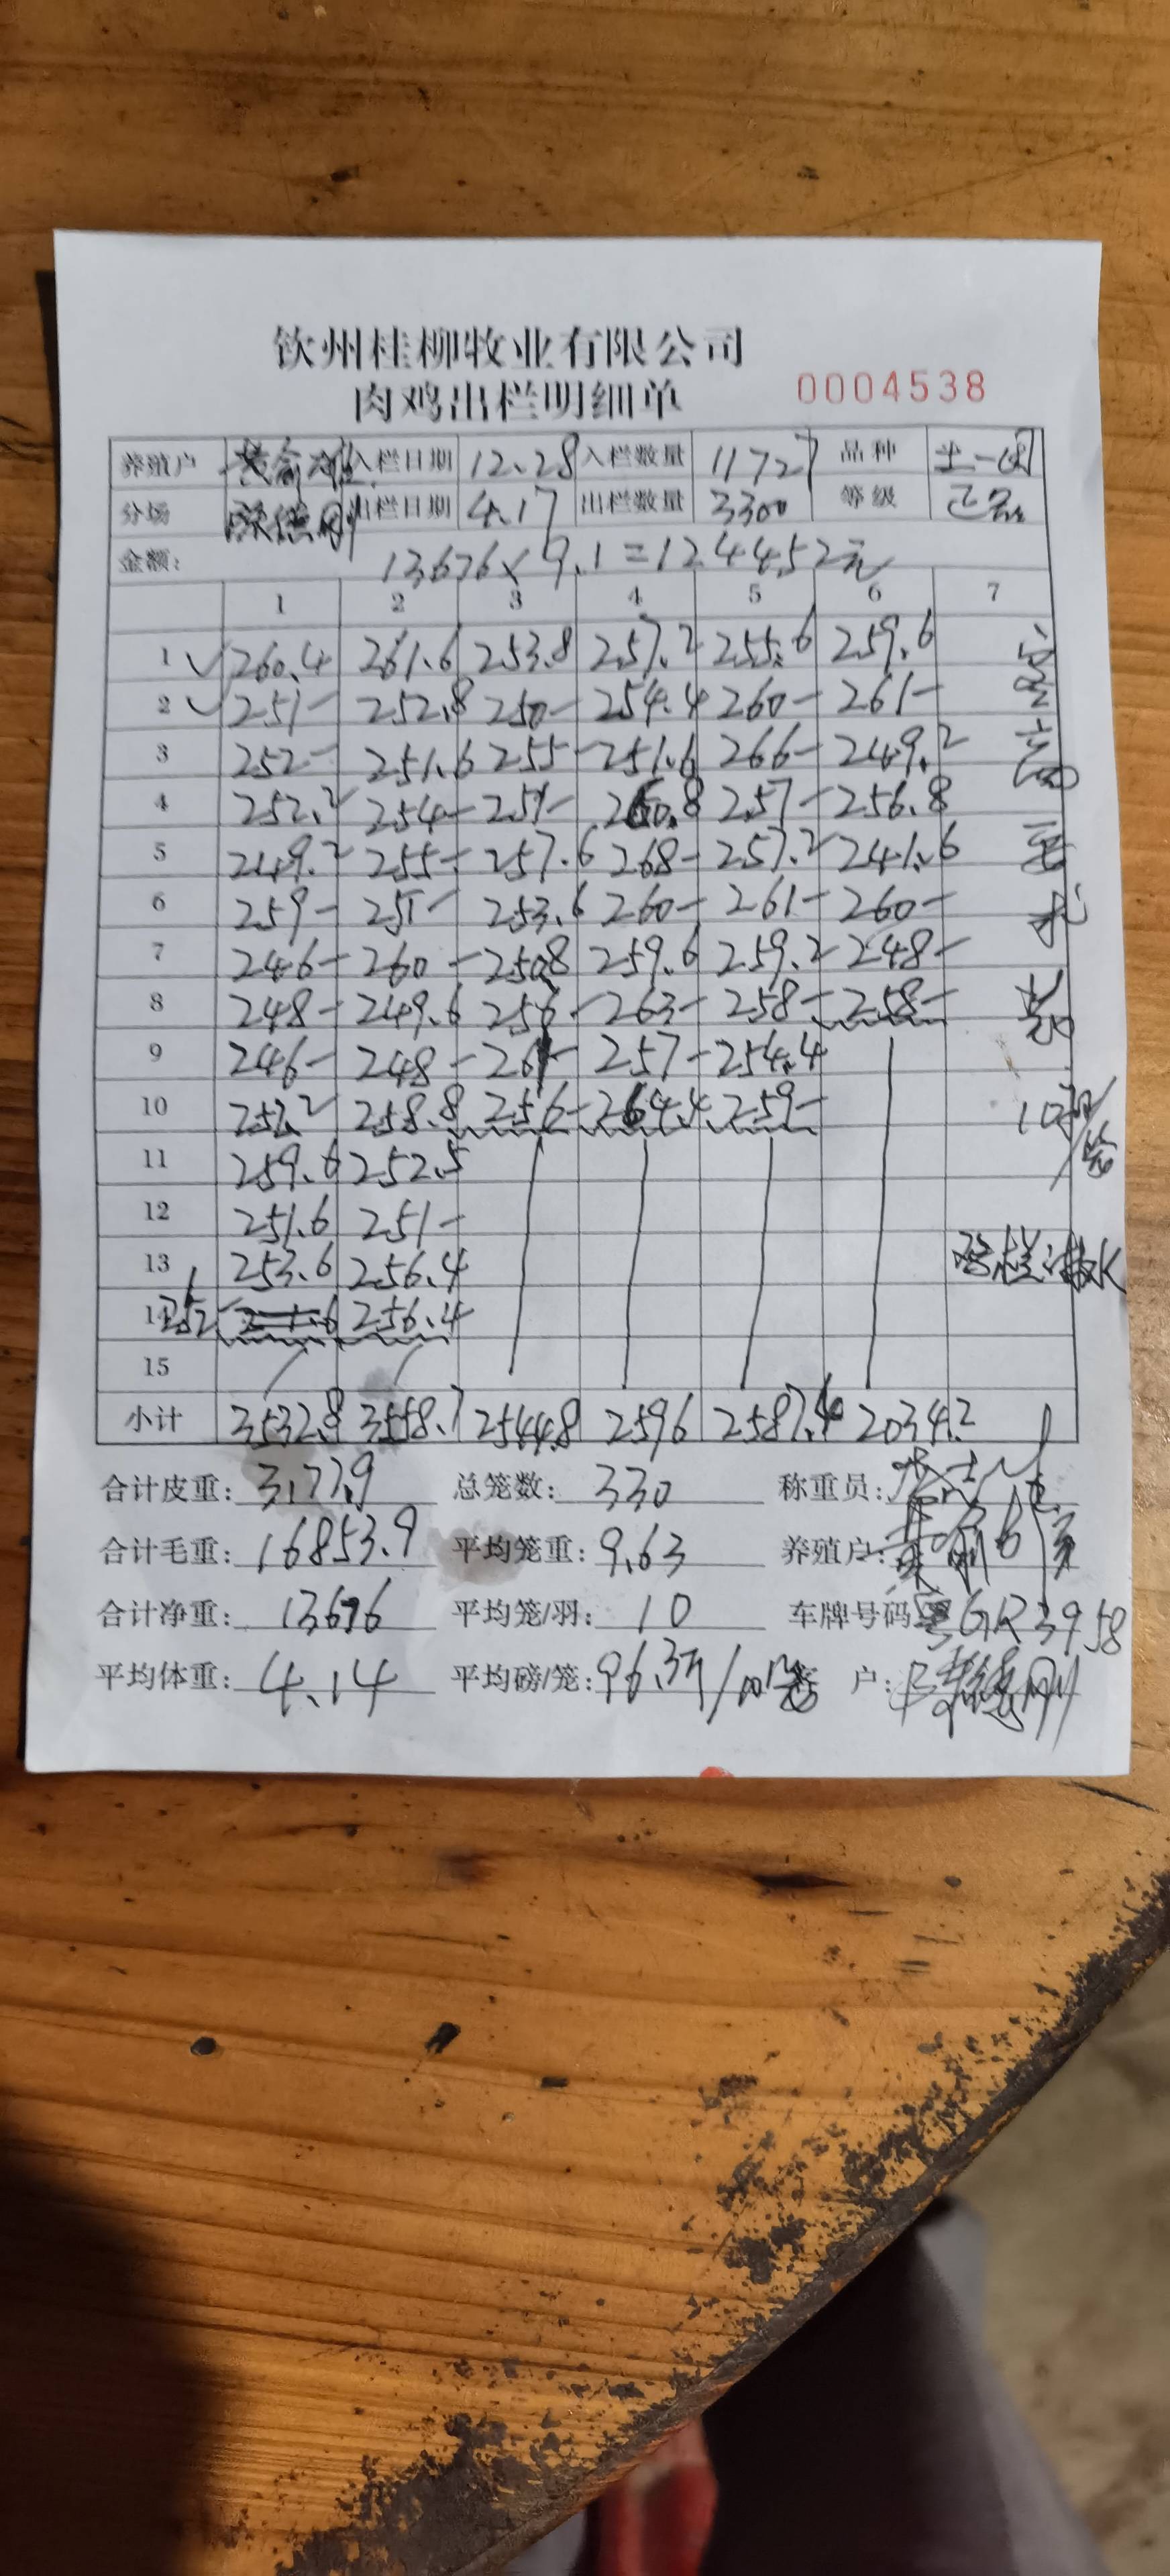 钦州桂柳牧业有限公司
肉鸡出栏明细单 0004538
养殖户 入栏日期 12.28 入栏数量 11727 品种 土一
分场 陈德刚 出栏日期 4.17 出栏数量 3300 等级 正品
金额: 13676×9.1=124452元
1 2 3 4 5 6 7
1 260.4 261.6 253.8 257.2 255.6 259.6
2 251- 252.8 250- 254.4 260- 261-
3 252- 251.6 255- 251.6 266- 249.2
4 252.2 254- 251- 260.8 257- 256.8
5 249.2 255- 257.6 268- 257.2 241.6
6 259- 251- 253.6 260- 261- 260-
7 246- 260- 250.8 259.6 259.2 248-
8 248- 249.6 256- 263- 258- 258-
9 246- 248- 261- 257- 254.4
10 252.2 258.8 256- 264.4 259-
11 259.6 252.5
12 251.6 251-
13 253.6 256.4
14 252- 256.4
15
小计 3532.8 3558.7 2544.8 2596 2587.4 2034.2
10羽/笼
合计皮重: 3177.9 总笼数: 330 称重员:
合计毛重: 16853.9 平均笼重: 9.63 养殖户:
合计净重: 13676 平均笼/羽: 10 车牌号码 粤GR3958
平均体重: 4.14 平均磅/笼: 96.3斤/ 客 户: 陈德刚